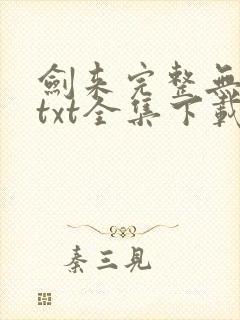 劍来完整無
txt全集下載
秦三見